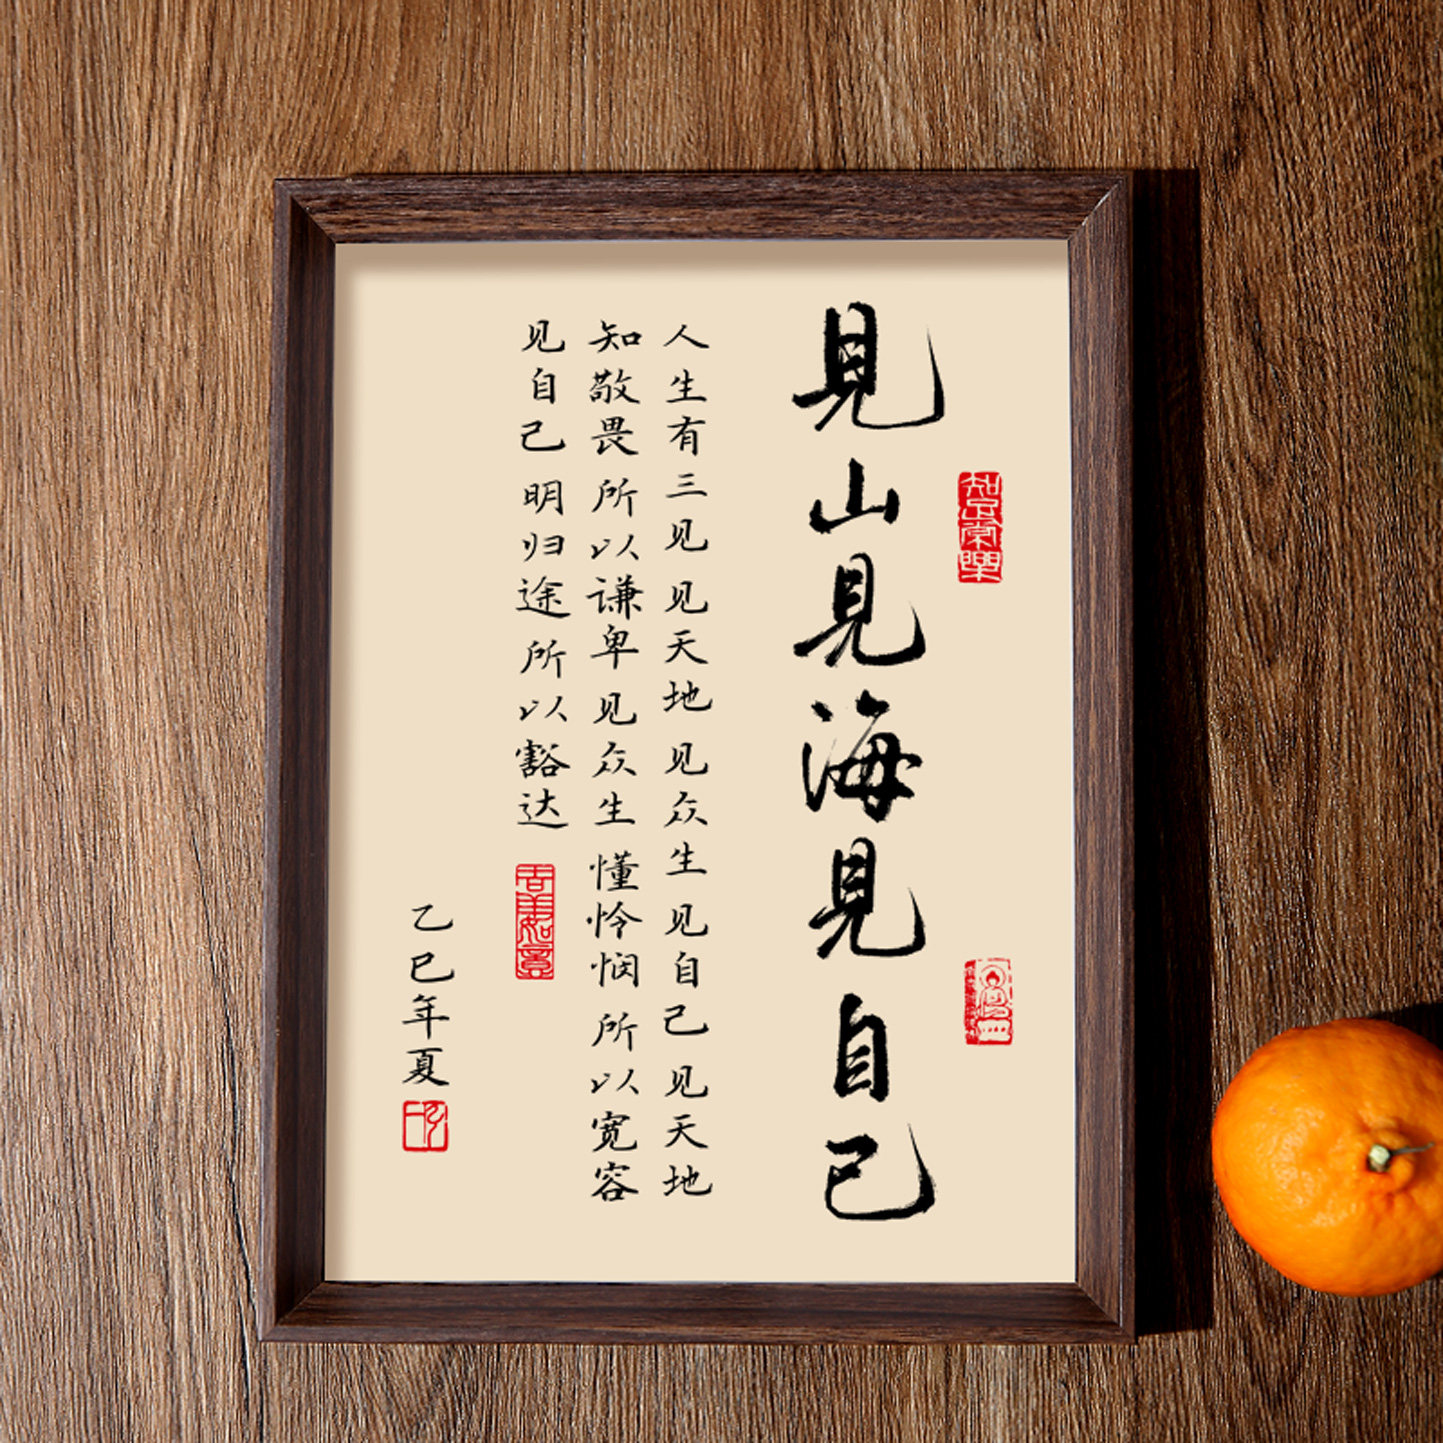 見山見海見自己
知足常樂
人生有三见 见天地 见众生 见自己 见天地
知敬畏 所以谦卑 见众生 懂怜悯 所以宽容
见自己 明归途 所以豁达
吉祥如意
乙巳年夏